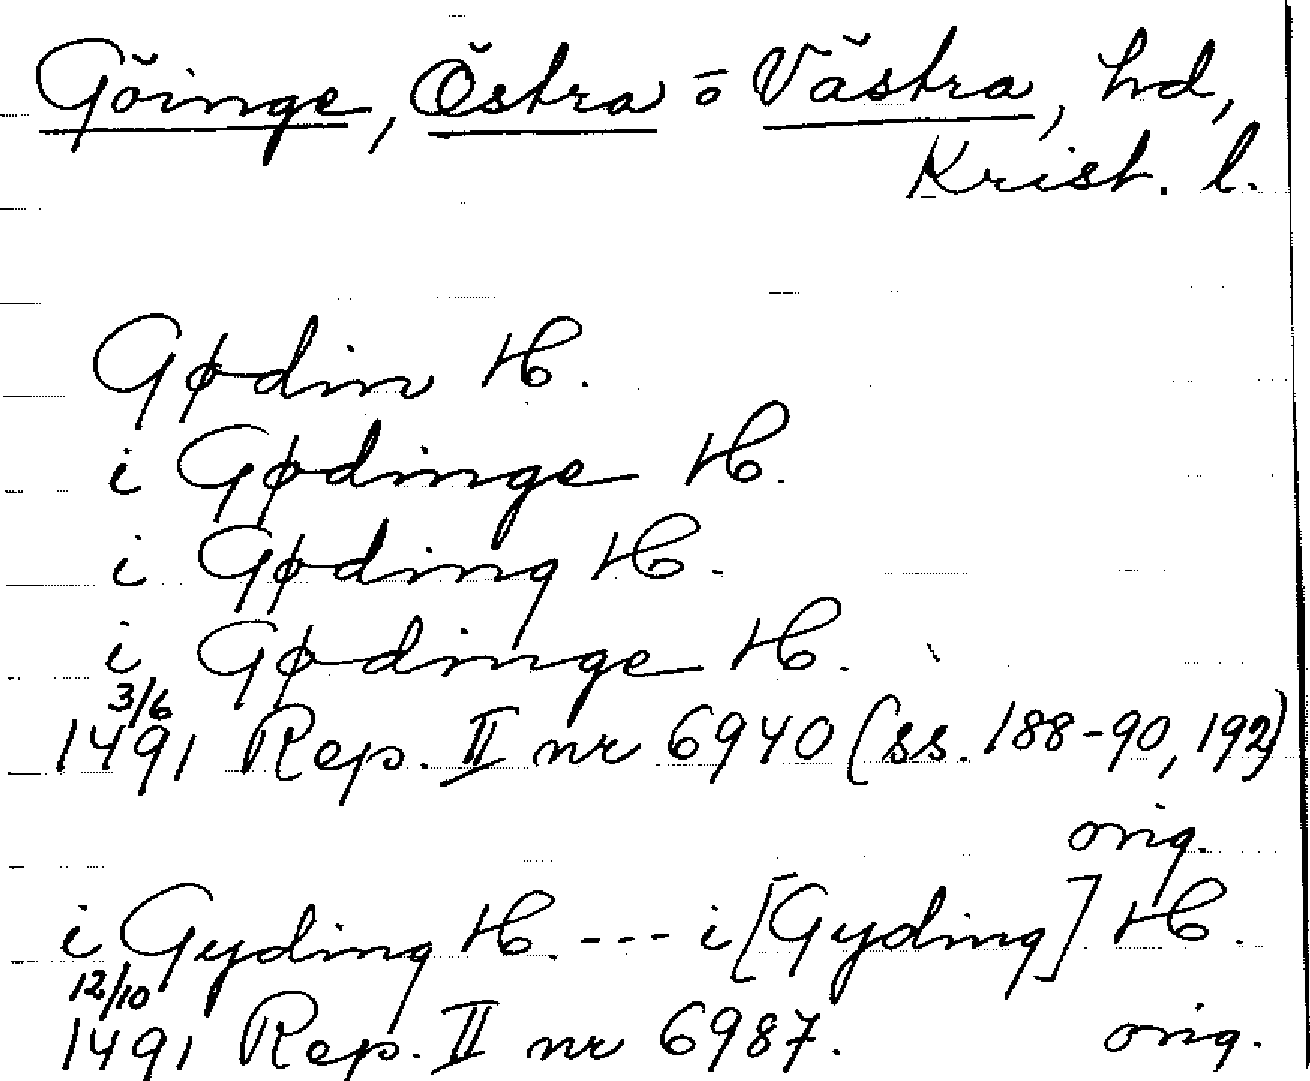 Göinge, Östra o Västra, hd,
Krist. l.
Gødin H.
i Gødinge H.
i Gøding H.
i Gødinge H.
3/6
1491 Rep. II nr 6940 (ss. 188-90, 192)
orig.
i Gyding H. --- i [Gyding] H.
12/10
1491 Rep. II nr 6987. orig.